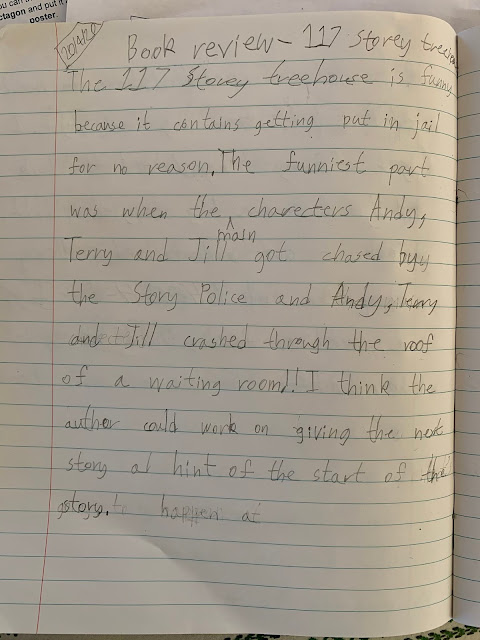 ou can
tagon and put it
poster.
20/4/20
Book review - 117 storey treehouse
The 117 storey treehouse is funny
because it contains getting put in jail
for no reason. The funniest part
was when the ^ charecters Andy,
main
Terry and Jill got chased byy
the Story Police and Andy, Terry
and Jill crashed through the roof
of a waiting room!! I think the
author could work on giving the next
story a hint of the start of the
story. happen at